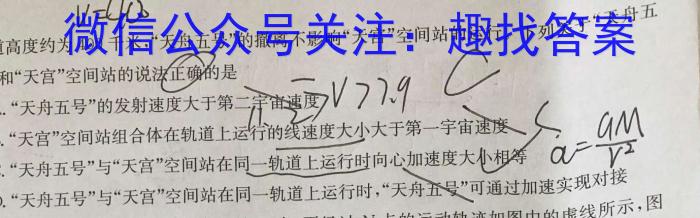 微信公众号关注：趣找答案
道高度约为 千米，“天舟五号”的撤离不影响“天宫”空间站的运行，下列关于“天舟五
和“天宫”空间站的说法正确的是
A.“天舟五号”的发射速度大于第二宇宙速度
B.“天宫”空间站组合体在轨道上运行的线速度大小大于第一宇宙速度
C.“天舟五号”与“天宫”空间站在同一轨道上运行时向心加速度大小相等
D.“天舟五号”与“天宫”空间站在同一轨道上运行时，“天舟五号”可通过加速实现对接
点的运动轨迹如图中的虚线所示，图
V>7.9
C
a=GM/r²